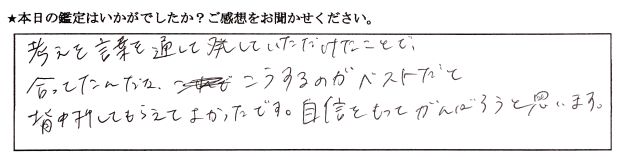 ★本日の鑑定はいかがでしたか？ご感想をお聞かせください。
考えを言葉を通して発していただけたことで、
合ってたんだな、こうするのがベストだと
背中押してもらえてよかったです。自信をもってがんばろうと思います。